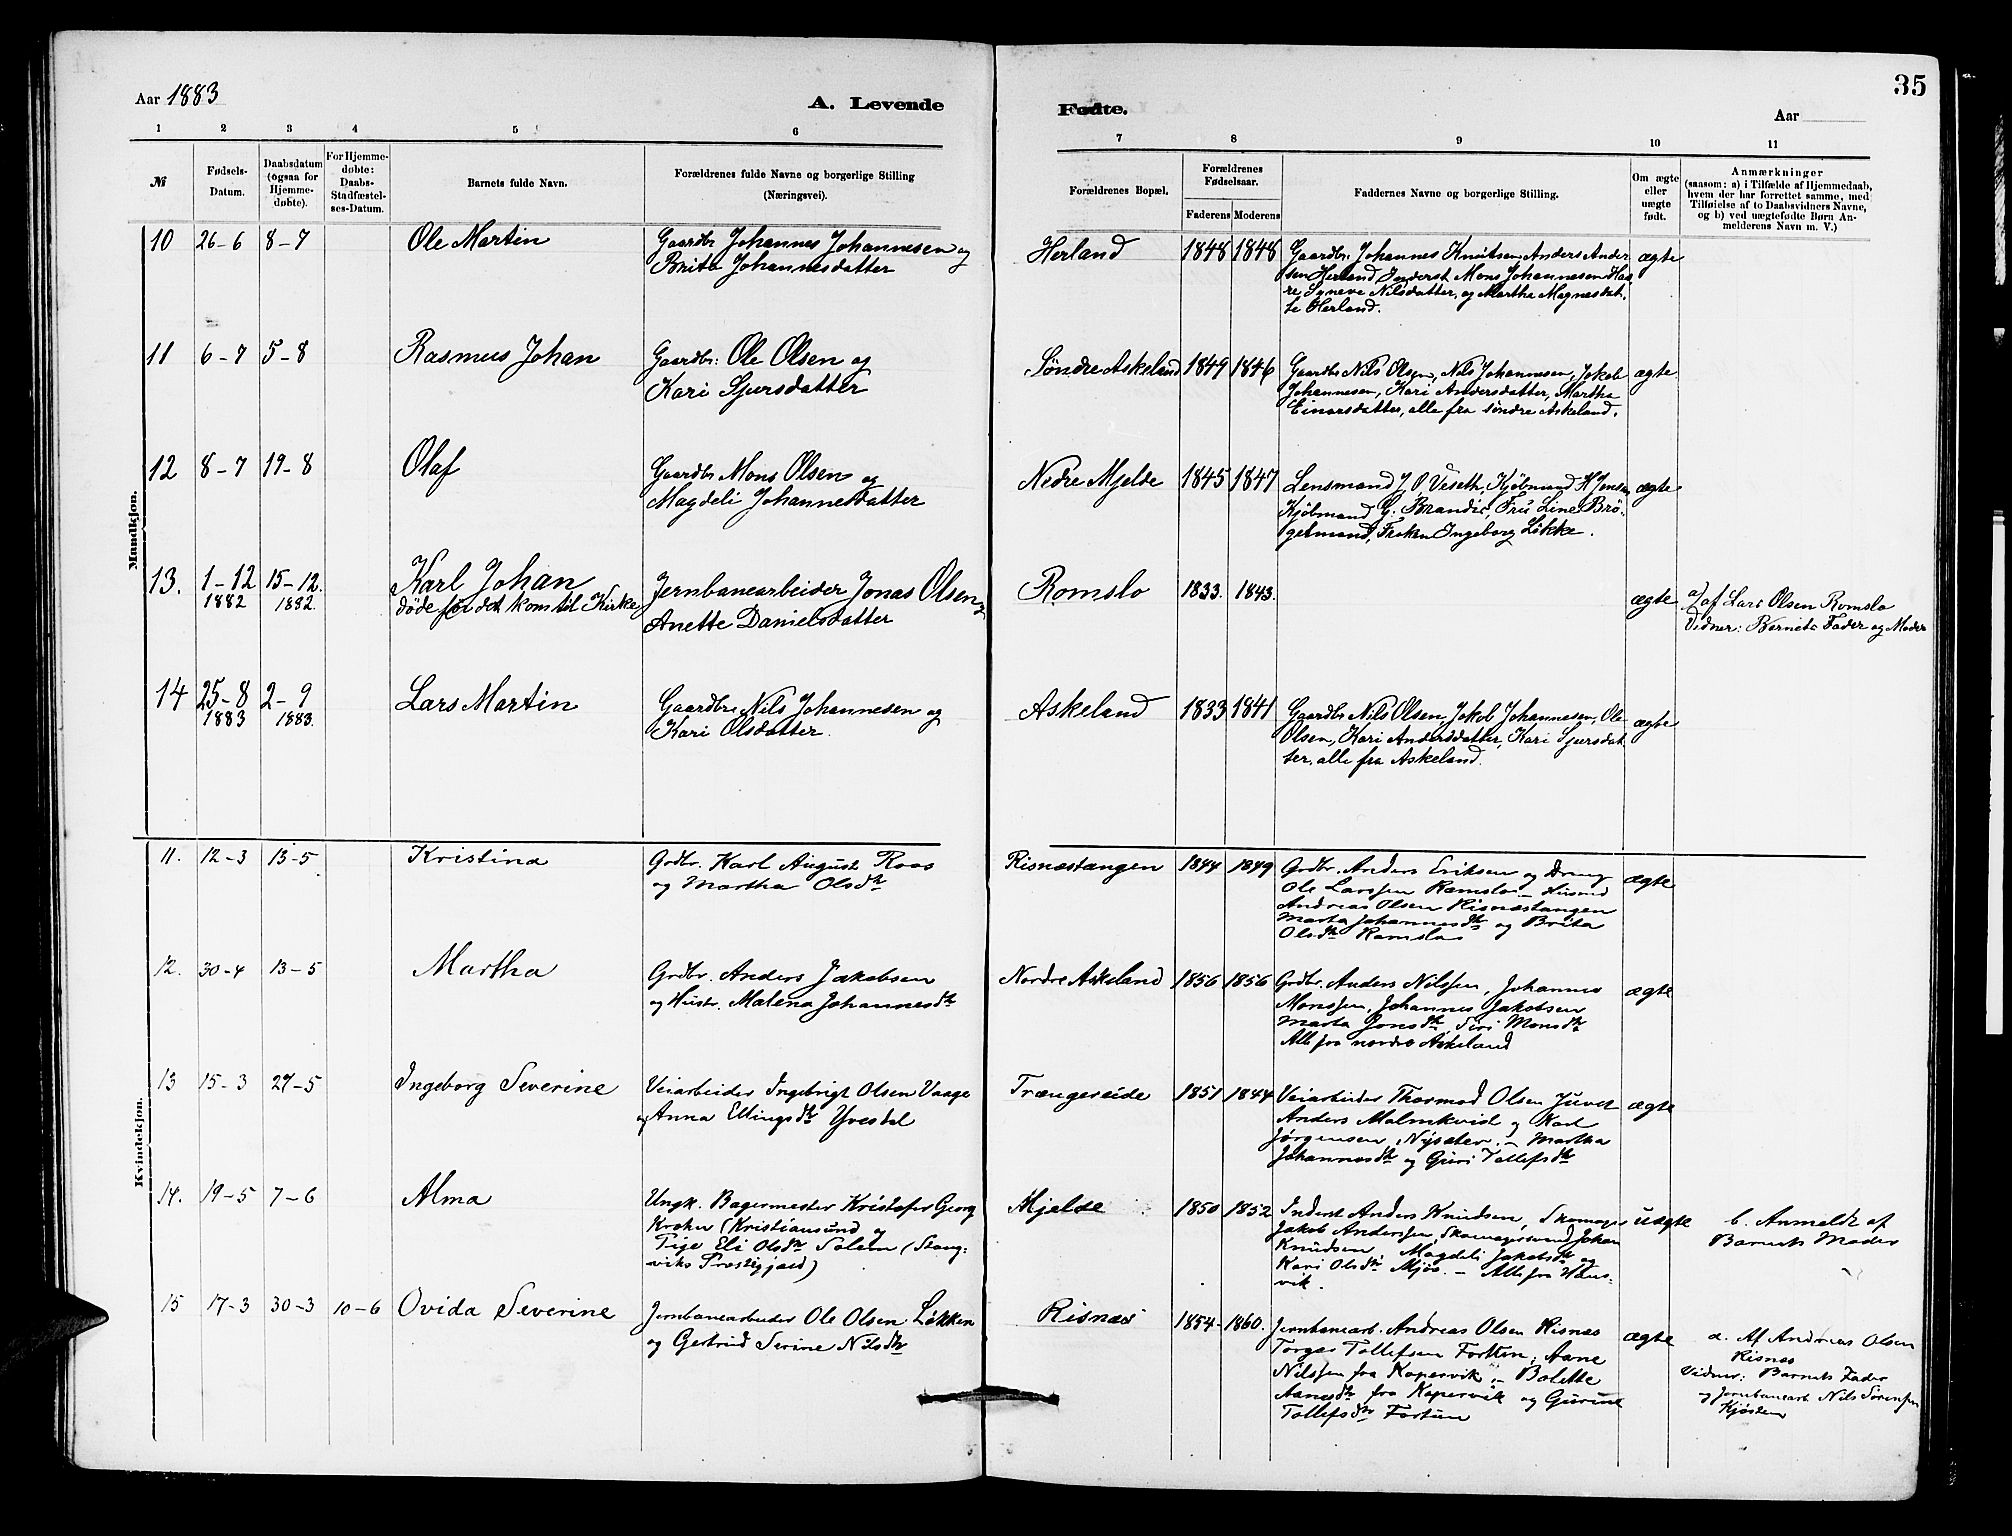 35
Aar 1883
A. Levende
Fødte.
Aar
1 2 3 4 5 6 7 8 9 10 11
№
Fødsels-
Datum.
Daabsdatum
(ogsaa for
Hjemme-
døbte).
For Hjemme-
døbte:
Daabs-
Stadfæstel-
ses-Datum.
Barnets fulde Navn.
Forældrenes fulde Navne og borgerlige Stilling
(Næringsvei).
Forældrenes Bopæl.
Forældrenes
Fødselsaar.
Faderens Moderens
Faddernes Navne og borgerlige Stilling.
Om ægte
eller
uægte
født.
Anmærkninger
(saasom: a) i Tilfælde af Hjemmedaab,
hvem der har forrettet samme, med
Tilføielse af to Daabsvidners Navne,
og b) ved uægtefødte Børn An-
melderens Navn m. V.)
Mandkjøn.
10 26-6 8-7 Ole Martin
Gaardbr Johannes Johannesen og
Brita Johannesdatter
Herland 1848 1848
Gaardbr: Johannes Knutsen, Anders Ander
sen Herland, Inderst Mons Johannesen Haa
re Syneve Nilsdatter, og Martha Magnesdat
te Herland.
ægte
11 6-7 5-8 Rasmus Johan
Gaardbr: Ole Olsen og
Kari Sjursdatter
Søndre Askeland 1849 1846
Gaardbr Nils Olsen, Nils Johannesen, Jakob
Johannesen, Kari Andersdatter, Martha
Einarsdatter, alle fra søndre Askeland.
ægte
12 8-7 19-8 Olaf
Gaardbr Mons Olsen og
Magdeli Johannesdatter
Nedre Mjelde 1845 1847
Lensmand J. O. Veseth, Kjøbmand H Jensen,
Kjøbmand G. Brandis, Fru Line Brø-
gelmand, Frøken Ingeborg Løkke.
ægte
13. 1-12 1882 15-12. 1882. Karl Johan
døde før det kom til Kirke
Jernbanearbeider Jonas Olsen og
Anette Danielsdatter
Romslo 1833. 1843.
ægte
a/ af Lars Olsen Romslo
Vidner: Barnets Fader og Moder
14 25-8 1883 2-9 1883. Lars Martin
Gaardbr Nils Johannesen og
Kari Olsdatter.
Askeland 1833 1841
Gaardbr Nils Olsen, Jakob Johannesen, Ole
Olsen, Kari Andersdatter, Kari Sjursdat
ter, alle fra Askeland.
ægte
Kvindekjøn.
11. 12-3 13-5 Kristina
Grdbr. Karl August Roos
og Martha Olsdtr
Risnæstangen 1844 1849
Grdbr. Anders Eriksen og Dreng
Ole Larssen Ramslo - Husmd
Andreas Olsen Risnæstangen
Marta Johannesdtr og Brita
Olsdtr Ramslo
ægte
12. 30-4 13-5 Martha
Grdbr. Anders Jakobsen
og Hustr. Malena Johannesdtr
Nordre Askeland 1856 1856
Grdbr. Anders Nilssen, Johannes
Monssen, Johannes Jakobsen
Marta Jonsdtr, Siri Monsdtr
Alle fra nordre Askeland
ægte
13 15-3 27-5 Ingeborg Severine
Veiarbeider Ingebrigt Olsen Vaage
og Anna Ellingsdtr Yvesdal
Trængereide 1851 1844
Veiarbeider Thormod Olsen Juvet
Anders Malmkvist og Karl
Jørgensen, Nysæter. - Martha
Johannesdtr og Guri Tollefsdtr
ægte
14. 19-5 7-6 Alma
Ungk. Bagermester Kristofer Georg
Krohn (Kristiansund og
Pige Eli Olsdtr Solem (Stang-
viks Prestegjæld)
Mjelde 1850 1852
Inderst Anders Knudsen, Skomager
Jakob Anderssen, Skomagersvend Johan
Knudsen, Magdeli Jakobsdtr og
Kari Olsdtr Mjøs. - Alle fra Haus-
vik.
uægte
b. Anmeldt af
Barnets Moder
15 17-3 30-3 10-6 Ovida Severine
Jernbanearbeider Ole Olsen Løkken
og Gertrud Serine Nilsdtr
Risnæs 1854 1860.
Jernbanearb. Andreas Olsen Risnæs
Torger Tollefsen Fortun, Aane
Nilssen fra Kopervik, - Bolette
Aanesdtr fra Kopervik og Gurine
Tollefsdtr Fortun
ægte
a. Af Andreas Olsen
Risnæs
Vidner: Barnets Fader
og Jernbanearb. Nils Sørensen